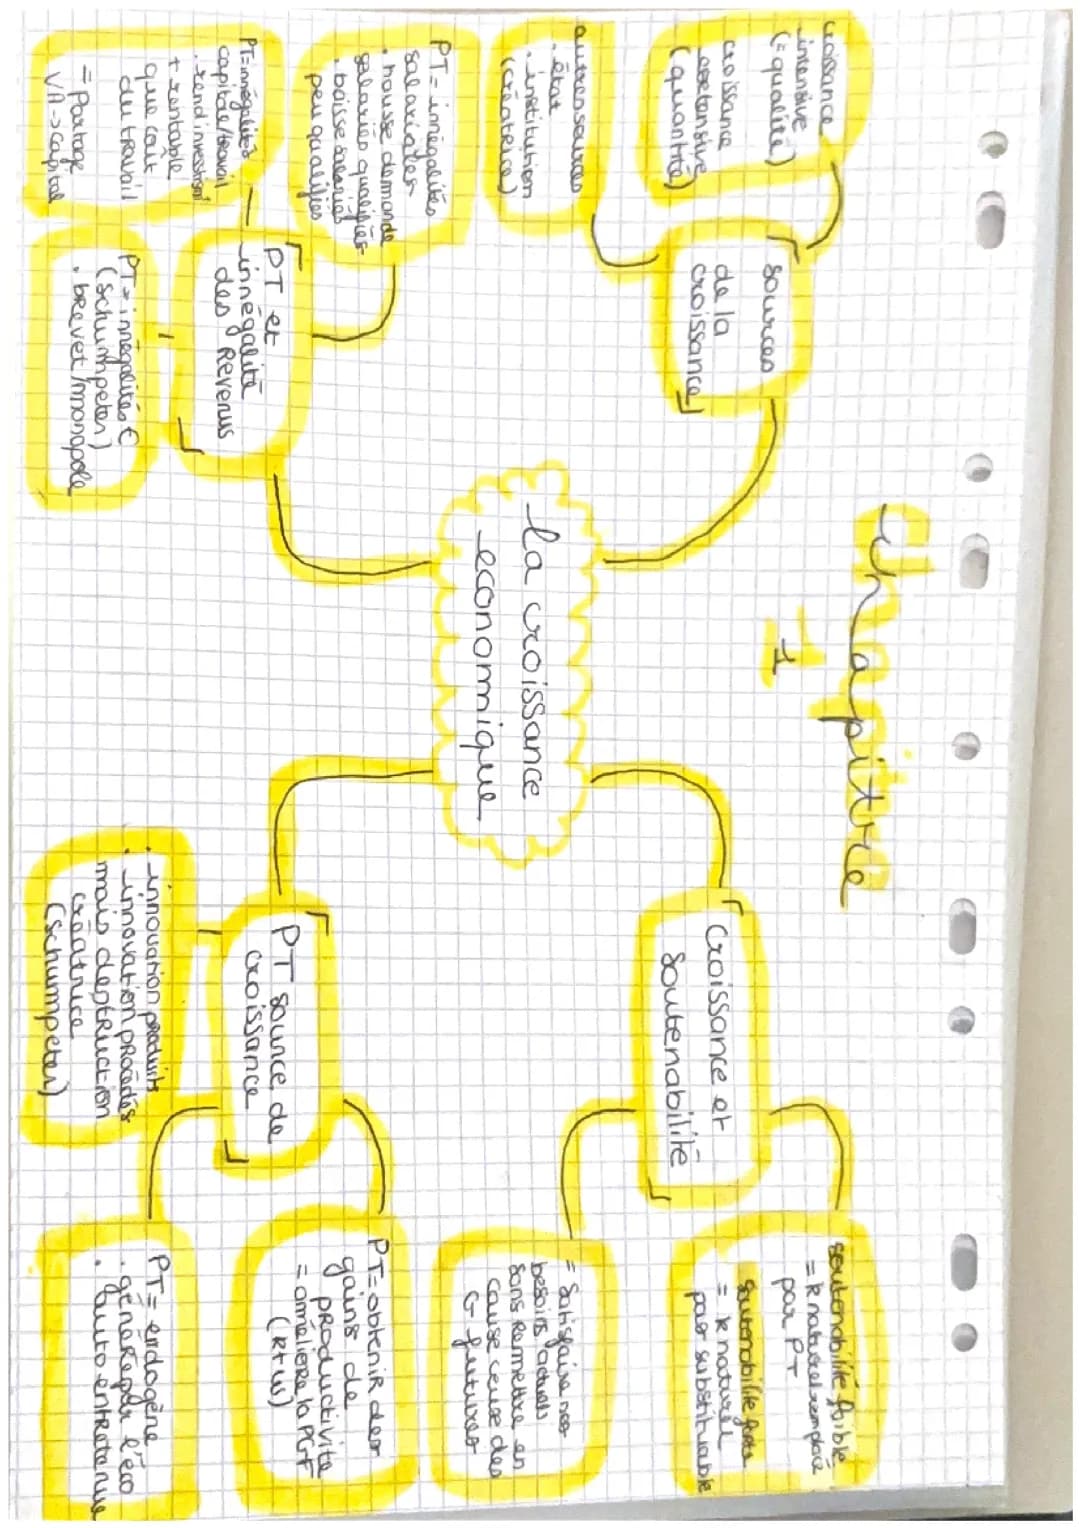 chapitre
1
la croissance
economique
sources
de la
croissance
croissance
intensive
(= qualité)
croissance
extensive
(quantité)
autres sources
. état
. institution
(créatrice)
PT et
innégalité
des Revenus
PT = innégalités
salariales
. hausse demande
salariés qualifiés
. baisse salariés
peu qualifiés
PT=innégalités
capital/travail
. rend investisst
+ rentable
que cout
du travail
= Partage
VA -> Capital
PT = innégalités €
(Schumpeter)
. brevet/monopole
Croissance et
soutenabilité
soutenabilité faible
= k naturel remplacé
par PT
soutenabilité forte
= k naturel
pas substituable
= Satisfaire nos
besoins actuels
sans remettre en
cause ceuse des
G- futures
PT source de
croissance
PT=obtenir des
gains de
productivité
= améliore la PGF
(k+w)
. innovation produits
. innovation procédés
mais destruction
créatrice
(Schumpeter)
PT= endogène
. générée par l'éco
. auto entretenue